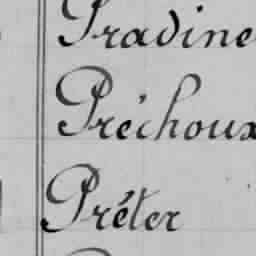 Pradine
Préchoux
Préter